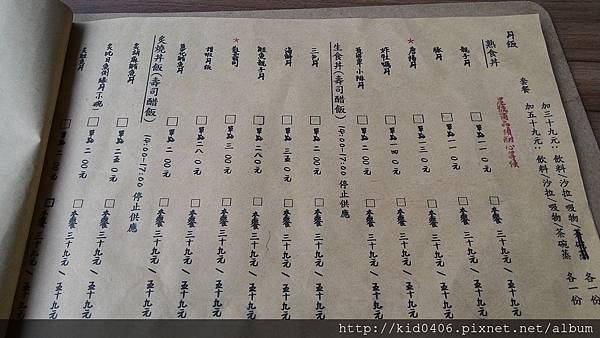 丼飯
套餐 加三十九元：飲料/沙拉/吸物 各一份
加五十九元：飲料/沙拉/吸物/茶碗蒸 各一份
熟食丼 耐心等候
親子丼 □單點 一一0元 □套餐 三十九元 / 五十九元
豚丼 □單點 一一0元 □套餐 三十九元 / 五十九元
*唐揚丼 □單點 一三0元 □套餐 三十九元 / 五十九元
炸牡蠣丼 □單點 一四0元 □套餐 三十九元 / 五十九元
小排丼 □單點 二00元 □套餐 三十九元 / 五十九元
生食丼(壽司醋飯) 14:00-17:00 停止供應
三色丼 □單點 三00元 □套餐 三十九元 / 五十九元
海鮮丼 □單點 三五0元 □套餐 三十九元 / 五十九元
鮭魚親子丼 □單點 二八0元 □套餐 三十九元 / 五十九元
*散壽司 □單點 三00元 □套餐 三十九元 / 五十九元
丼飯 □單點 二八0元 □套餐 三十九元 / 五十九元
葱花鮪魚丼 □單點 二00元 □套餐 三十九元 / 五十九元
炙燒丼飯(壽司醋飯) 14:00-17:00 停止供應
鮪魚丼 □單點 二五0元 □套餐 三十九元 / 五十九元
炙比目魚側緣丼(小碗) □單點 二00元 □套餐 三十九元 / 五十九元
炙鮭魚丼 □單點 二00元 □套餐 三十九元 / 五十九元
http://kid0406.pixnet.net/album